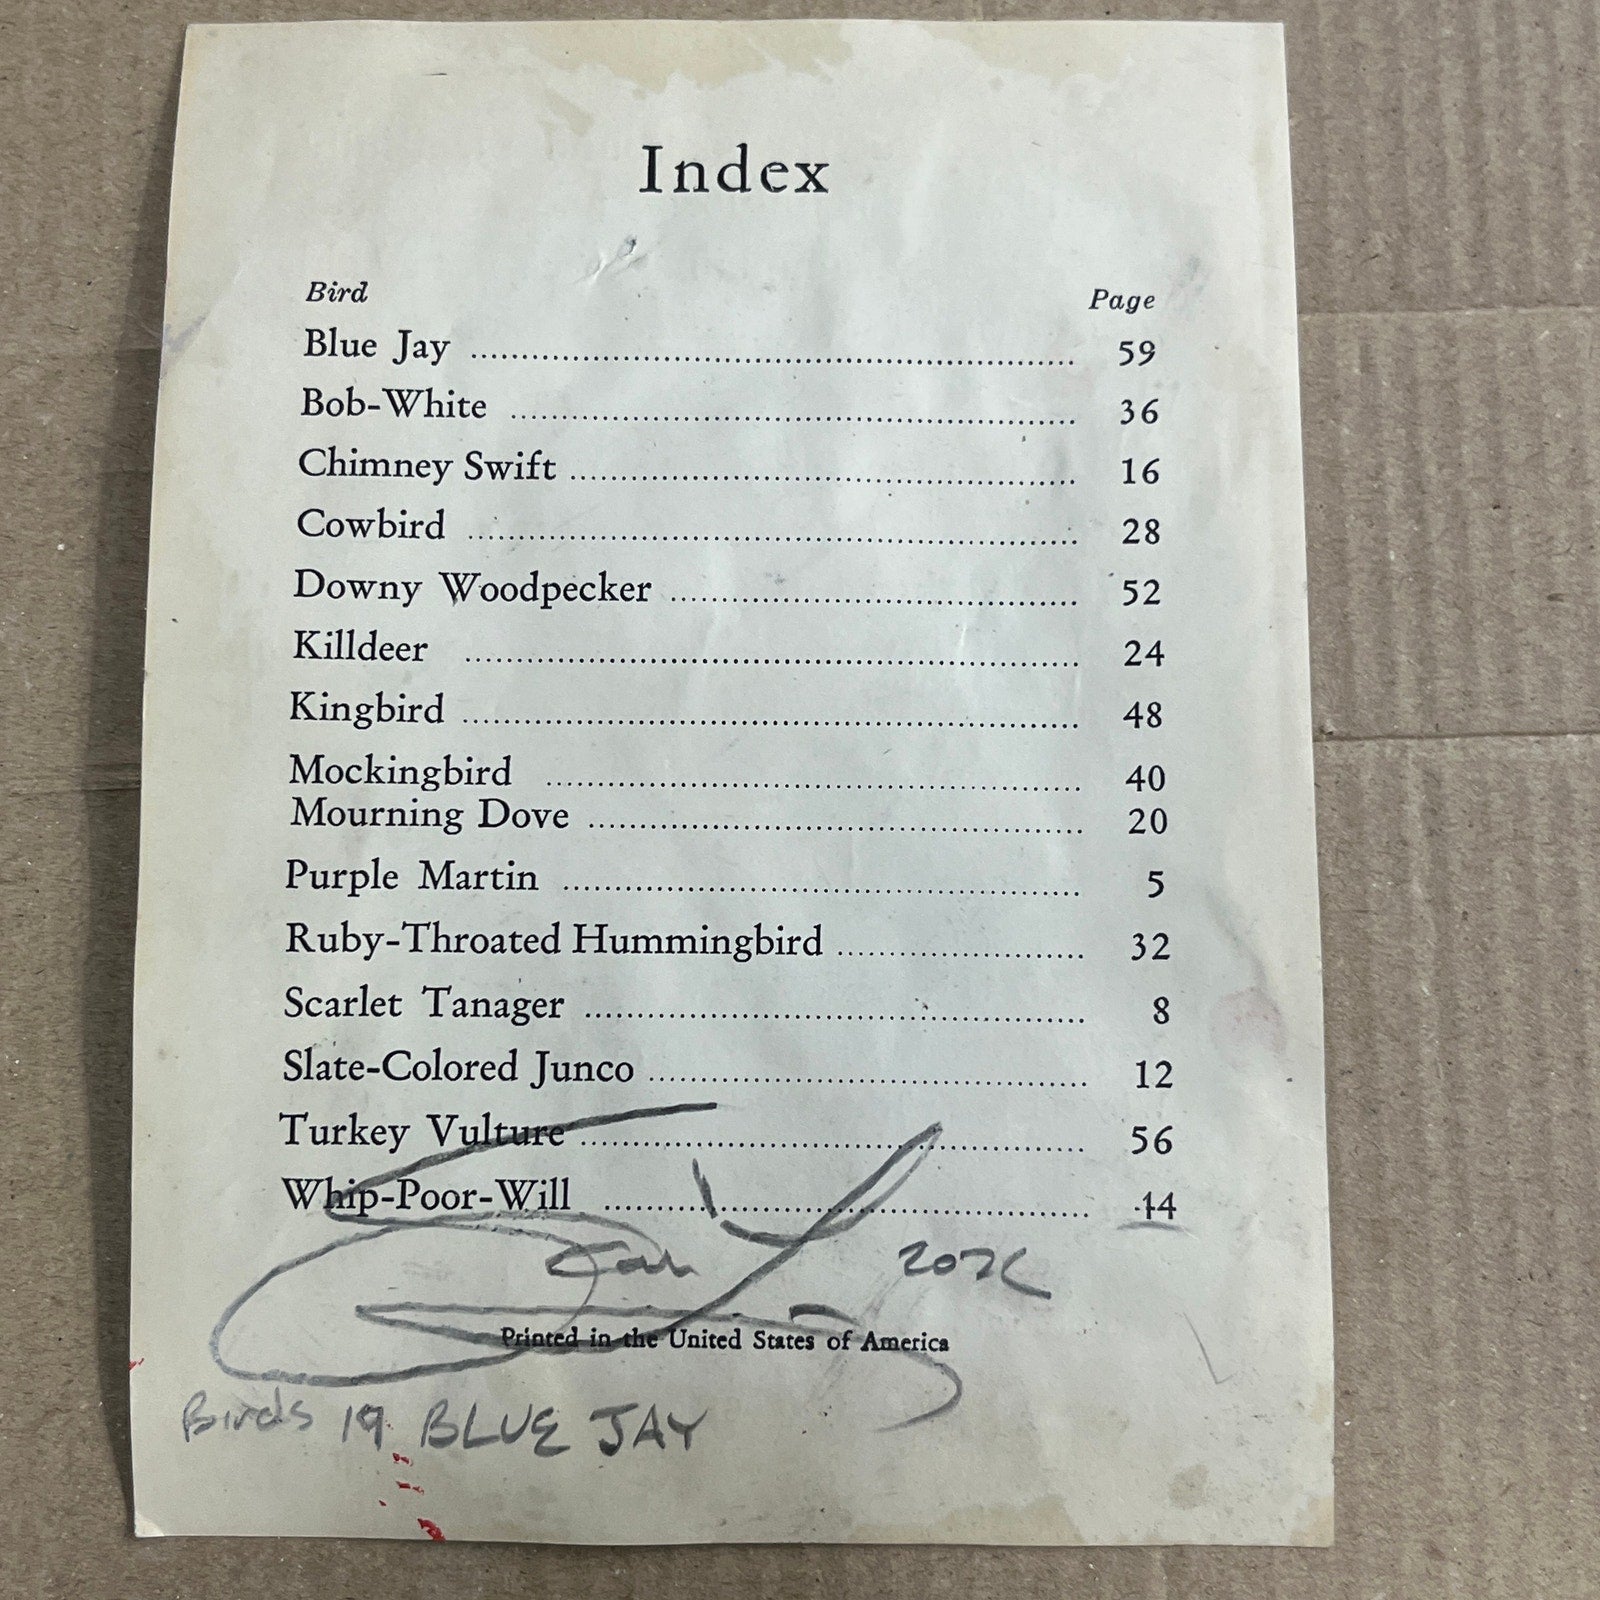 Index
Bird Page
Blue Jay ........ 59
Bob-White ........ 36
Chimney Swift ........ 16
Cowbird ........ 28
Downy Woodpecker ........ 52
Killdeer ........ 24
Kingbird ........ 48
Mockingbird ........ 40
Mourning Dove ........ 20
Purple Martin ........ 5
Ruby-Throated Hummingbird ........ 32
Scarlet Tanager ........ 8
Slate-Colored Junco ........ 12
Turkey Vulture ........ 56
Whip-Poor-Will ........ 44
Printed in the United States of America
Birds 19 BLUE JAY